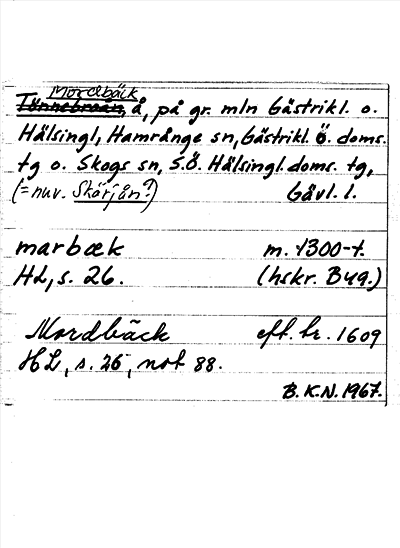 Mordbäck
Tönnebroån, å, på gr. mln Gästrikl. o.
Hälsingl, Hamrånge sn, Gästrikl. Ö. doms.
tg o. Skogs sn, S.Ö. Hälsingl. doms. tg,
(= nuv. Skärjån?) Gävl. l.
marbæk m. 1300-t.
HL, s. 26. (hskr. B 49.)
Mordbäck eft. br. 1609
HL, s. 26, not 88.
B. K. N. 1967.